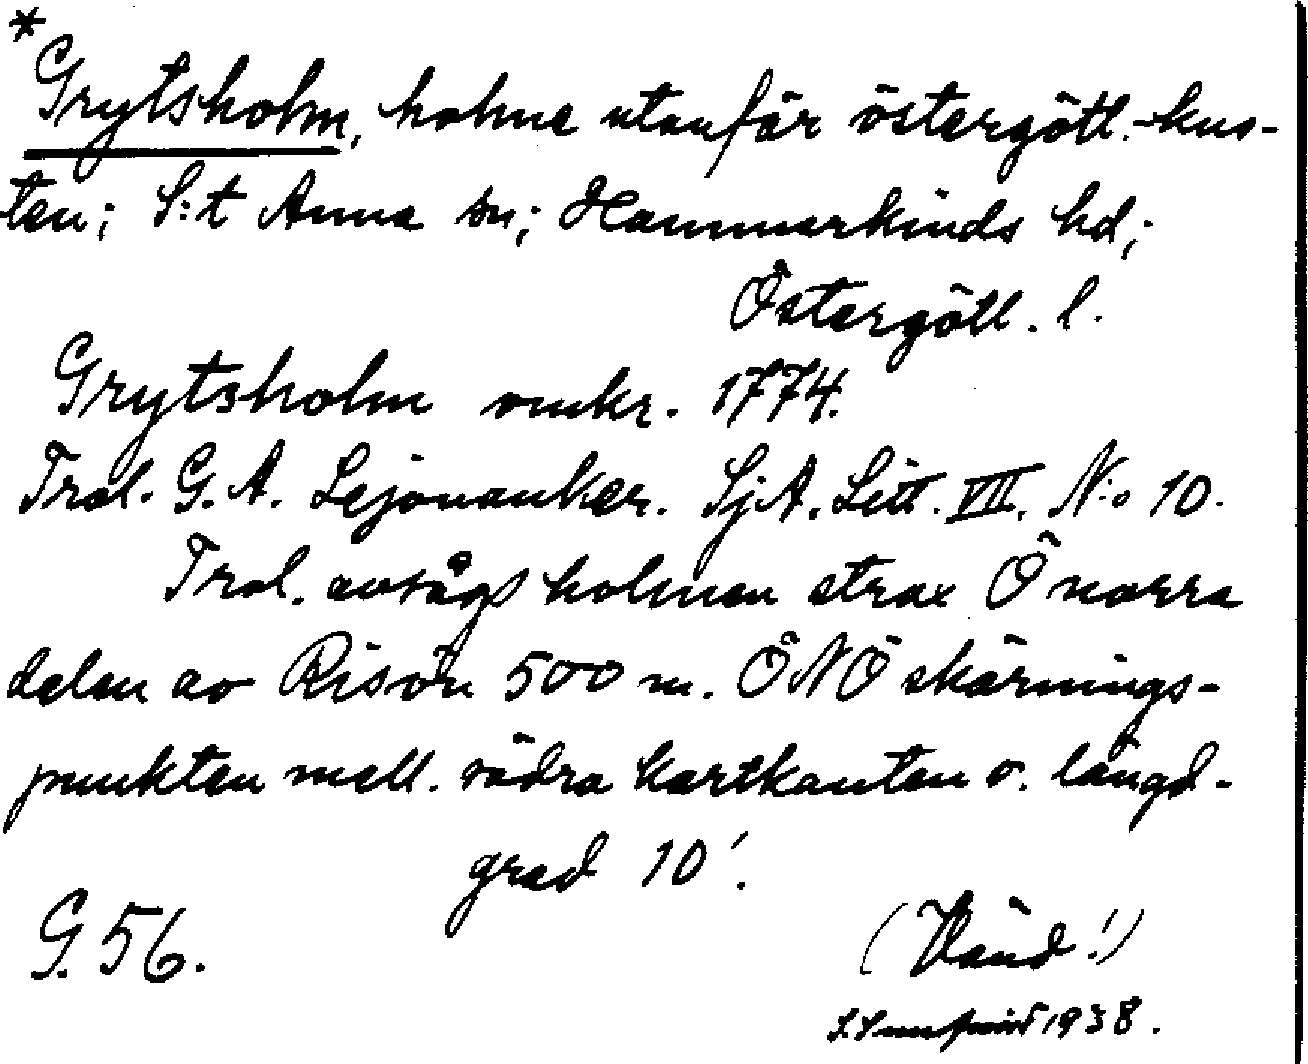 *
Grytsholm, holme utanför östergötl.-kus-
ten; S:t Anna sn; Hammarkinds hd;
Östergötl. l.
Grytsholm omkr. 1774.
Trol. G. A. Lejonanker. SjA. Litt. VII. N:o 10.
Trol. avsågs holmen strax Ö norra
delen av Risön 500 m. ÖNÖ skärnings-
punkten mell. södra kartkanten o. längd-
grad 10'.
G. 56.
(Vänd!)
1938.